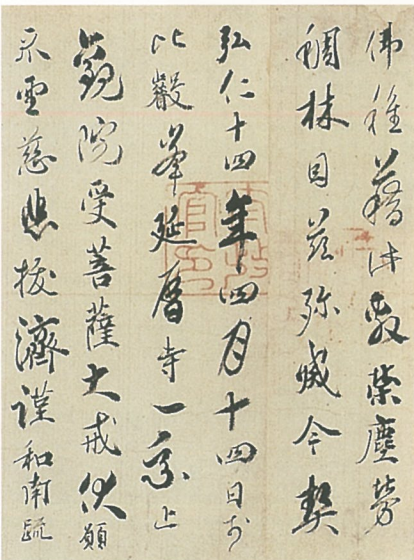 佛種藉此敷榮塵勞
稠林因茲殄滅今契
弘仁十四年四月十四日於
比叡峯延暦寺一乗止
觀院受菩薩大戒伏願
垂慈悲拔濟謹和南疏